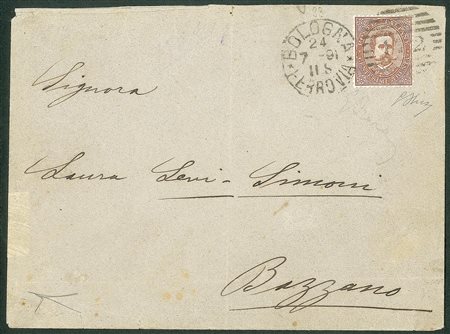 BOLOGNA
24
7-91
11 S
FERROVIA
Signora
Laura Levi-Simoni
Bazzano